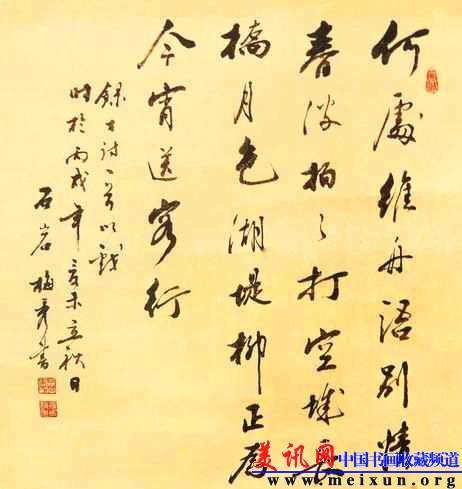 何處維舟語別情
春波拍々打空城長
橋月色湖堤柳正為
今宵送客行
錄古詩一首以
時於丙戌年夏末立秋日
石岩梅書
美讯网
中国书画收藏频道
www.meixun.org